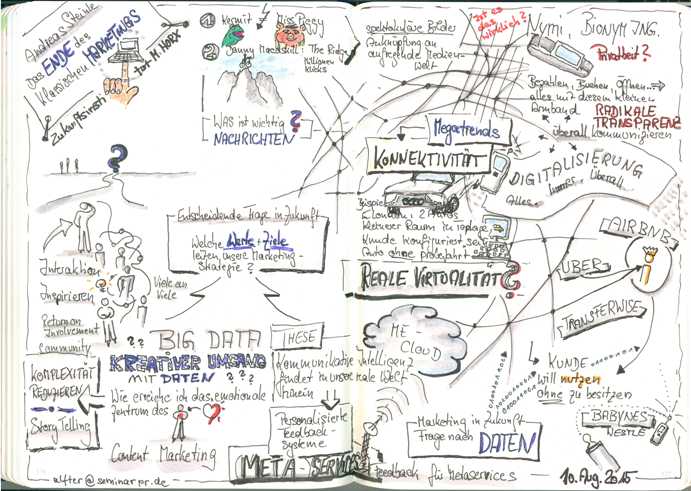 Andreas Steinle
Das ENDE des
klassischen MARKETINGS
Zukunftsinstitut
fort M. HORX
1 Kermit
Miss Piggy
2 Danny Macaskill
The Ridge
Millionen
Klicks
WAS ist wichtig ?
NACHRICHTEN
?
Entscheidende Frage in Zukunft
Welche Werte + Ziele
leiten unsere Marketing-
Strategie?
Interaktion
Inspirieren
Viele an
Viele
Return on
Involvement
Community
??
KOMPLEXITÄT
REDUZIEREN
StoryTelling
BIG DATA
KREATIVER UMGANG
MIT DATEN ? ? ?
Wie erreiche ich das emotionale
Zentrum des
Content Marketing
THESE
Kommunikative Intelligenz
ändert in unsere reale Welt
hinein
Personalisierte
Feedback-
Systeme
META-SERVICES
@seminarpr.de
spektakuläre Bilder
Anknüpfung an
aufregende Medien-
Welt
Ist es
das
wirklich?
Megatrends
KONNEKTIVITÄT
Beispiel
2 Autos
Kunde konfiguriert
Auto ohne Probefahrt
REALE VIRTUALITÄT ?
ME-
CLOUD
Marketing in Zukunft
Frage nach DATEN
Feedback für Metaservices
Nymi, BIONYM ING.
Privatheit?
Bezahlen, Buchen, Öffnen...
alles mit diesem kleinen
Armband
RADIKALE
TRANSPARENZ
überall kommunizieren
DIGITALISIERUNG
Alles
Immer
Überall
AIRBNB
UBER
TRANSFERWISE
KUNDE
will nutzen
ohne zu besitzen
BABYNES
NESTLE
10. Aug. 2015